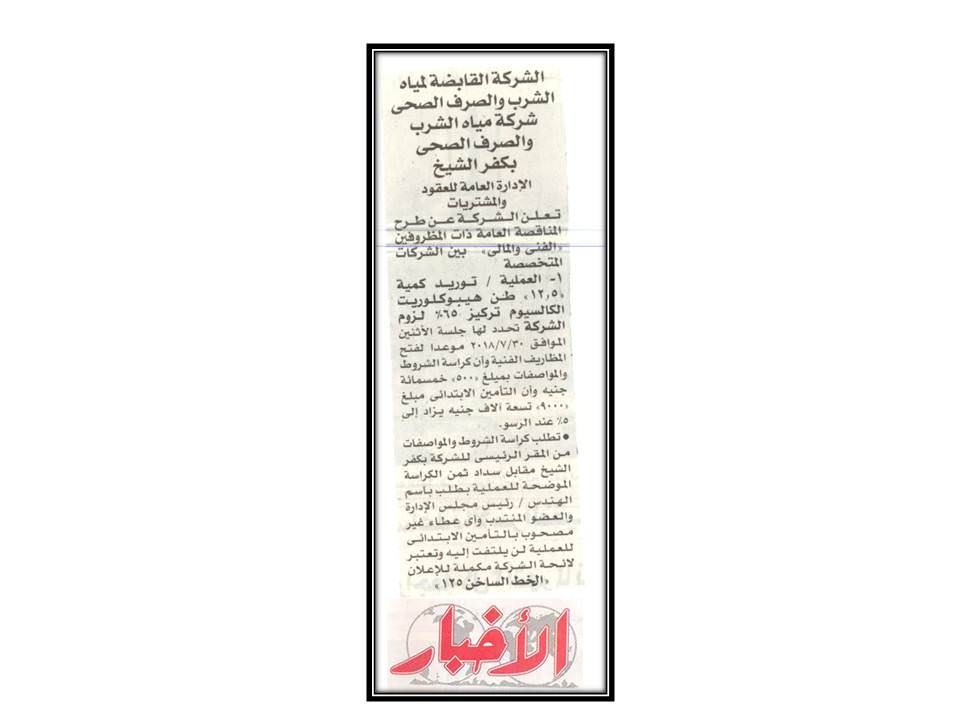 الشركة القابضة لمياه
الشرب والصرف الصحى
شركة مياه الشرب
والصرف الصحى
بكفر الشيخ
الإدارة العامة للعقود
والمشتريات
تعلن الشركة عن طرح
المناقصة العامة ذات المظروفين
«الفنى والمالى» بين الشركات
المتخصصة
١- العملية / توريد كمية
«١٢,٥» طن هيبوكلوريت
الكالسيوم تركيز ٦٥٪ لزوم
الشركة تحدد لها جلسة الأثنين
الموافق ٢٠١٨/٧/٣٠ موعدا لفتح
المظاريف الفنية وأن كراسة الشروط
والمواصفات بمبلغ «٥٠٠» خمسمائة
جنيه وأن التأمين الابتدائى مبلغ
«٩٠٠٠» تسعة آلاف جنيه يزاد إلى
٥٪ عند الرسو.
● تطلب كراسة الشروط والمواصفات
من المقر الرئيسى للشركة بكفر
الشيخ مقابل سداد ثمن الكراسة
الموضحة للعملية بطلب بأسم
الهندس / رئيس مجلس الإدارة
والعضو المنتدب وأى عطاء غير
مصحوب بالتأمين الابتدائى
للعملية لن يلتفت إليه وتعتبر
لائحة الشركة مكملة للإعلان
«الخط الساخن ١٢٥»
الأخبار